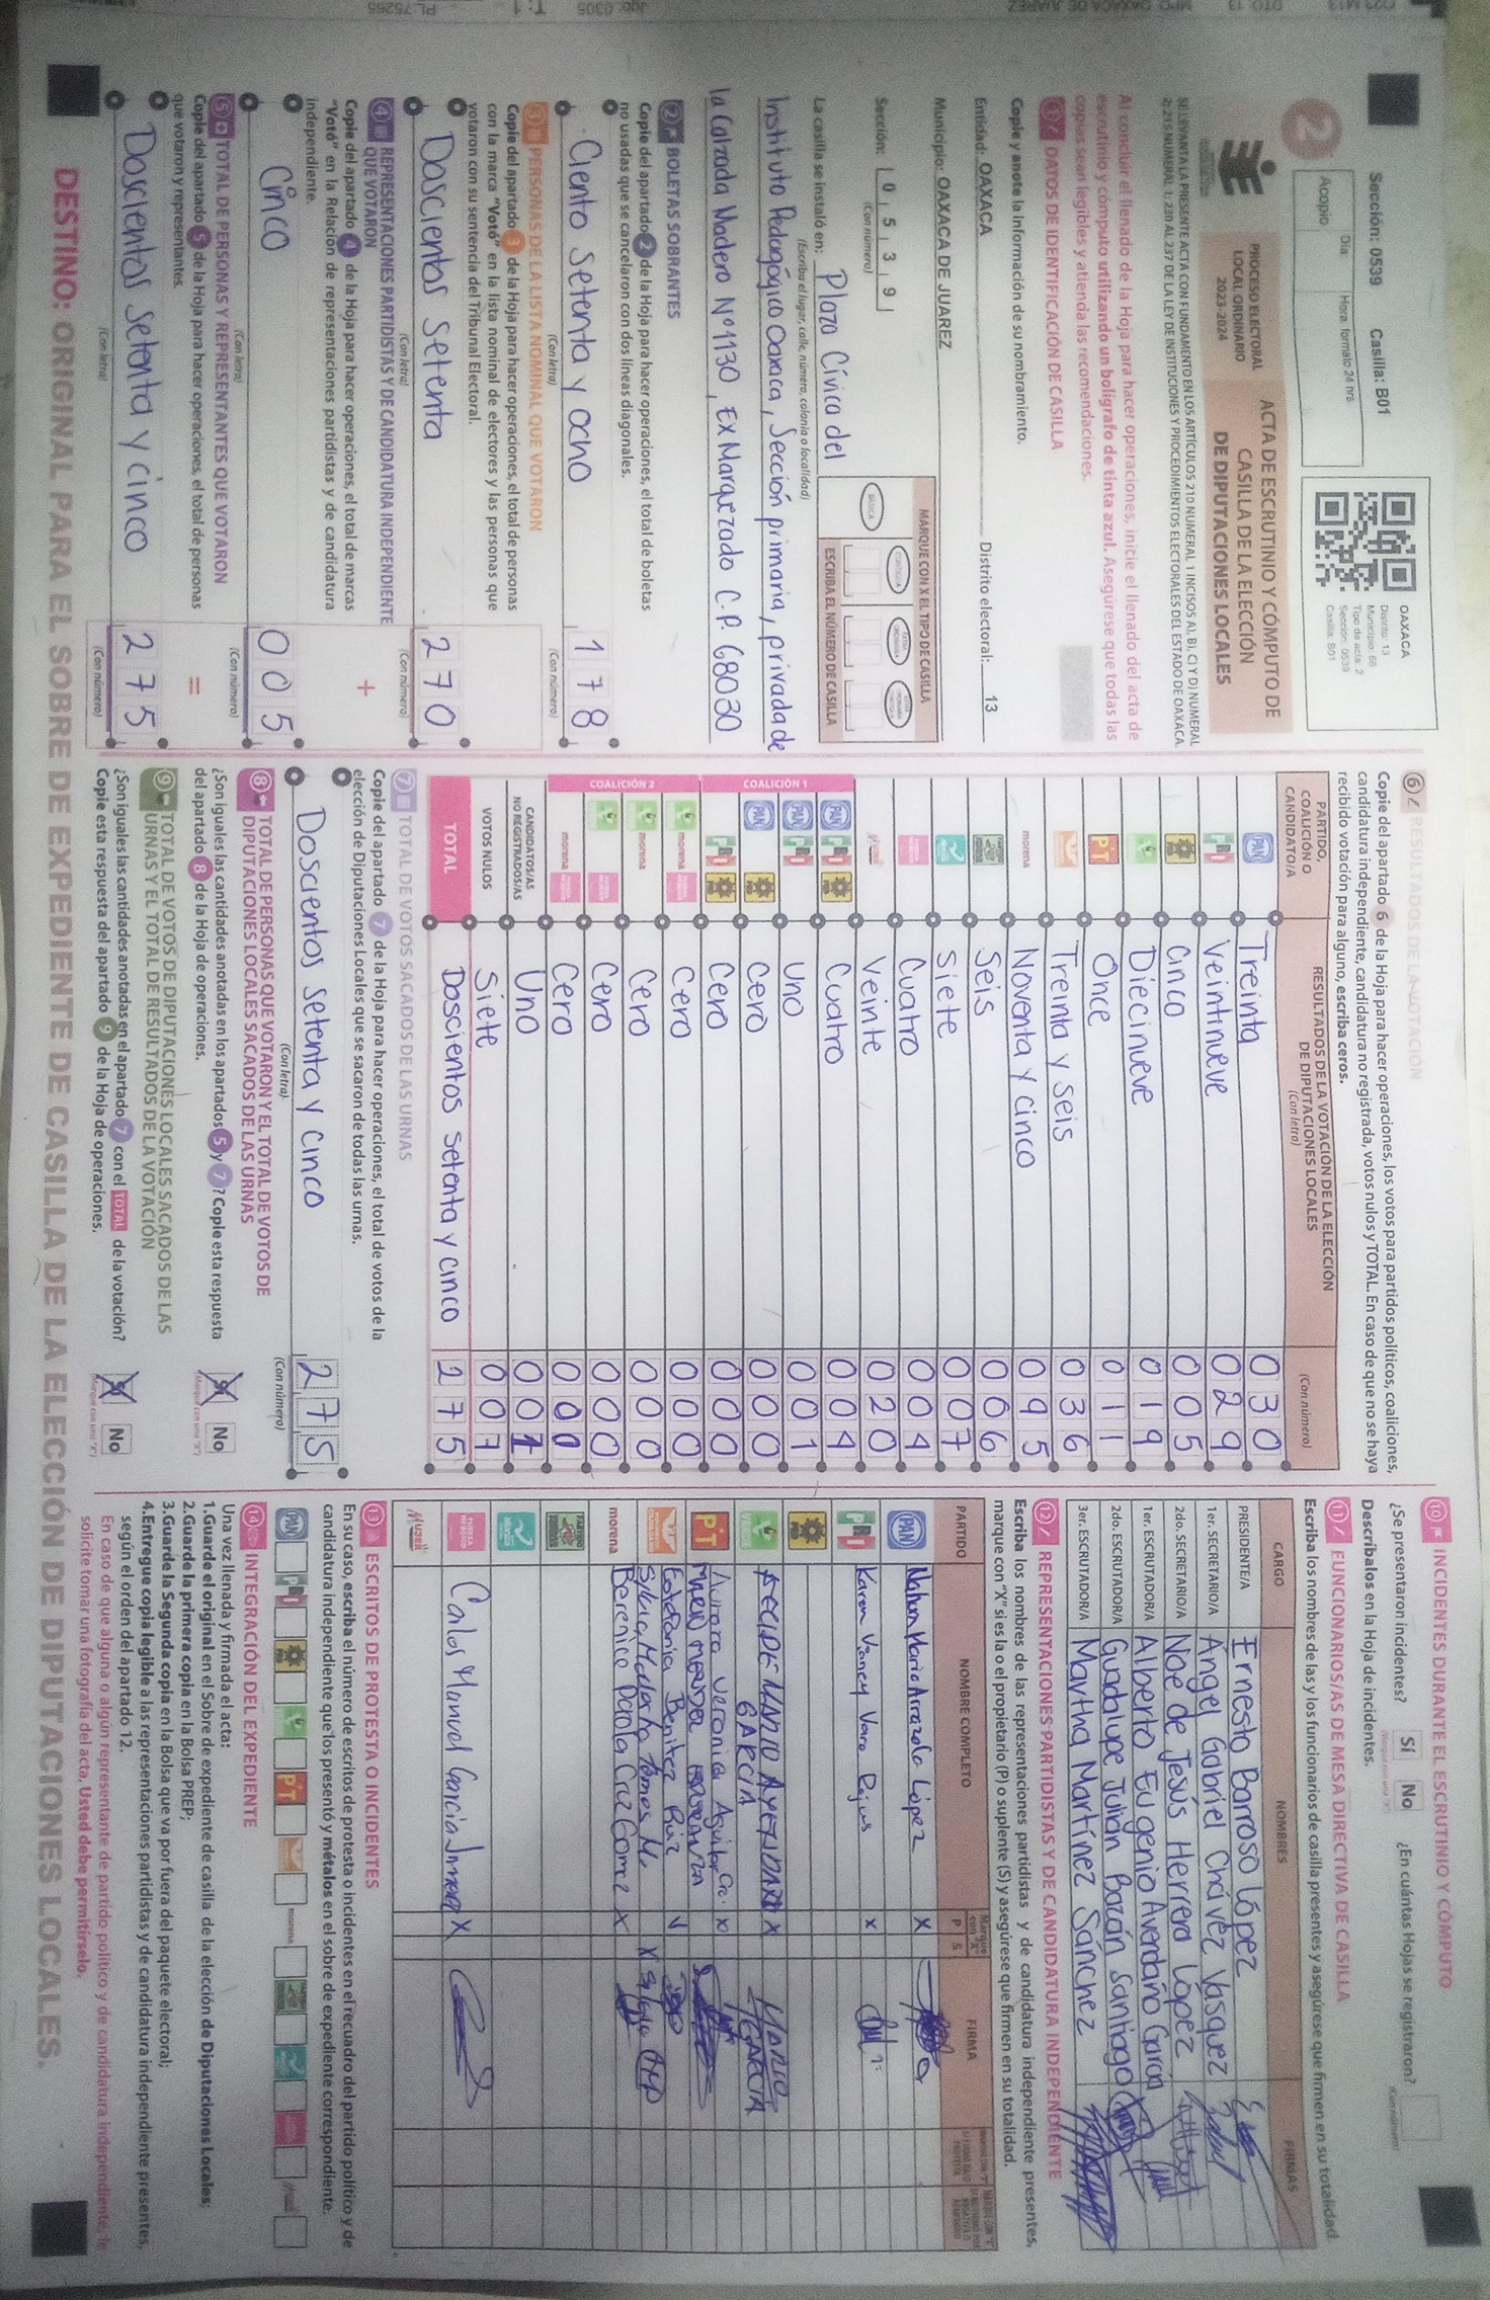 Sección: 0539 Casilla: B01
2
Acopio
Día:
Hora formato 24 hrs.
OAXACA
Distrito: 13
Municipio: 66
Tipo de acta: 2
Sección: 0539
Casilla: B01
PROCESO ELECTORAL
LOCAL ORDINARIO
2023-2024
ACTA DE ESCRUTINIO Y CÓMPUTO DE
CASILLA DE LA ELECCIÓN
DE DIPUTACIONES LOCALES
SE LEVANTA LA PRESENTE ACTA CON FUNDAMENTO EN LOS ARTÍCULOS 210 NUMERAL 1 INCISOS A), B), C) Y D) NUMERAL
2; 215 NUMERAL 1; 230 AL 237 DE LA LEY DE INSTITUCIONES Y PROCEDIMIENTOS ELECTORALES DEL ESTADO DE OAXACA.
Al concluir el llenado de la Hoja para hacer operaciones, inicie el llenado del acta de
escrutinio y cómputo utilizando un bolígrafo de tinta azul. Asegúrese que todas las
copias sean legibles y atienda las recomendaciones.
1 DATOS DE IDENTIFICACIÓN DE CASILLA
Copie y anote la información de su nombramiento.
Entidad: OAXACA Distrito electoral: 13
Municipio: OAXACA DE JUAREZ
Sección: 0 5 3 9
(Con número)
MARQUE CON X EL TIPO DE CASILLA
BÁSICA
CONTIGUA
ESCRIBA EL NÚMERO DE CASILLA
La casilla se instaló en: Plaza Cívica del
(Escriba el lugar, calle, número, colonia o localidad)
Instituto Pedagógico Oaxaca, Sección primaria, privada de
la Calzada Madero N°1130, Ex Marquezado C.P. 68030
2 BOLETAS SOBRANTES
Copie del apartado 2 de la Hoja para hacer operaciones, el total de boletas
no usadas que se cancelaron con dos líneas diagonales.
Ciento setenta y ocho 178
(Con letra) (Con número)
3 PERSONAS DE LA LISTA NOMINAL QUE VOTARON
Copie del apartado 3 de la Hoja para hacer operaciones, el total de personas
con la marca "Votó" en la lista nominal de electores y las personas que
votaron con su sentencia del Tribunal Electoral.
Doscientos setenta 270
(Con letra) (Con número)
4 REPRESENTACIONES PARTIDISTAS Y DE CANDIDATURA INDEPENDIENTE
QUE VOTARON
+
Copie del apartado 4 de la Hoja para hacer operaciones, el total de marcas
"Votó" en la Relación de representaciones partidistas y de candidatura
independiente.
Cinco 005
(Con letra) (Con número)
5 TOTAL DE PERSONAS Y REPRESENTANTES QUE VOTARON
=
Copie del apartado 5 de la Hoja para hacer operaciones, el total de personas
que votaron y representantes.
Doscientos setenta y cinco 275
(Con letra) (Con número)
6 RESULTADOS DE LA VOTACIÓN
Copie del apartado 6 de la Hoja para hacer operaciones, los votos para partidos políticos, coaliciones,
candidatura independiente, candidatura no registrada, votos nulos y TOTAL. En caso de que no se haya
recibido votación para alguno, escriba ceros.
PARTIDO,
COALICIÓN O
CANDIDATO/A
RESULTADOS DE LA VOTACIÓN DE LA ELECCIÓN
DE DIPUTACIONES LOCALES
(Con letra) (Con número)
PAN Treinta 030
PRI Veintinueve 029
PRD Cinco 005
Diecinueve 019
PT Once 011
Treinta y seis 036
morena Noventa y cinco 095
Seis 006
Siete 007
Cuatro 004
Veinte 020
COALICIÓN 1
PAN PRI PRD Cuatro 004
PAN PRI Uno 001
PAN PRD Cero 000
PRI PRD Cero 000
COALICIÓN 2
morena Cero 000
morena Cero 000
Cero 000
morena Cero 000
CANDIDATOS/AS
NO REGISTRADOS/AS Uno 001
VOTOS NULOS Siete 007
TOTAL Doscientos setenta y cinco 275
7 TOTAL DE VOTOS SACADOS DE LAS URNAS
Copie del apartado 7 de la Hoja para hacer operaciones, el total de votos de la
elección de Diputaciones Locales que se sacaron de todas las urnas.
Doscientos setenta y cinco 275
(Con letra) (Con número)
8 TOTAL DE PERSONAS QUE VOTARON Y EL TOTAL DE VOTOS DE
DIPUTACIONES LOCALES SACADOS DE LAS URNAS
¿Son iguales las cantidades anotadas en los apartados 5 y 7? Copie esta respuesta
del apartado 8 de la Hoja de operaciones.
Sí No
9 TOTAL DE VOTOS DE DIPUTACIONES LOCALES SACADOS DE LAS
URNAS Y EL TOTAL DE RESULTADOS DE LA VOTACIÓN
¿Son iguales las cantidades anotadas en el apartado 7 con el TOTAL de la votación?
Copie esta respuesta del apartado 9 de la Hoja de operaciones.
Sí No
10 INCIDENTES DURANTE EL ESCRUTINIO Y CÓMPUTO
¿Se presentaron incidentes? Sí No ¿En cuántas Hojas se registraron?
Descríbalos en la Hoja de incidentes.
11 FUNCIONARIOS/AS DE MESA DIRECTIVA DE CASILLA
Escriba los nombres de las y los funcionarios de casilla presentes y asegúrese que firmen en su totalidad.
CARGO NOMBRES FIRMAS
PRESIDENTE/A Ernesto Barroso López
1er. SECRETARIO/A Ángel Gabriel Chávez Vásquez
2do. SECRETARIO/A Noé de Jesús Herrera López
1er. ESCRUTADOR/A Alberto Eugenio Avendaño García
2do. ESCRUTADOR/A Guadalupe Julián Bazán Santiago
3er. ESCRUTADOR/A Maytha Martínez Sánchez
12 REPRESENTACIONES PARTIDISTAS Y DE CANDIDATURA INDEPENDIENTE
Escriba los nombres de las representaciones partidistas y de candidatura independiente presentes,
marque con "X" si es la o el propietario (P) o suplente (S) y asegúrese que firmen en su totalidad.
PARTIDO NOMBRE COMPLETO P S FIRMA
PAN Arrazola López X
PRI Karen Yancy Vara X
GARCIA X MARIO GARCIA
PT Aurora Veronica Aguilar X
Benitez Ruiz
morena Berenice Cruz Gomez X
Manuel Garcia X
MUJER
13 ESCRITOS DE PROTESTA O INCIDENTES
En su caso, escriba el número de escritos de protesta o incidentes en el recuadro del partido político y de
candidatura independiente que los presentó y métalos en el sobre de expediente correspondiente.
PAN PRI PRD PT morena
14 INTEGRACIÓN DEL EXPEDIENTE
Una vez llenada y firmada el acta:
1.Guarde el original en el Sobre de expediente de casilla de la elección de Diputaciones Locales;
2.Guarde la primera copia en la Bolsa PREP;
3.Guarde la Segunda copia en la Bolsa que va por fuera del paquete electoral;
4.Entregue copia legible a las representaciones partidistas y de candidatura independiente presentes,
según el orden del apartado 12.
En caso de que alguna o algún representante de partido político y de candidatura independiente, le
solicite tomar una fotografía del acta, Usted debe permitírselo.
DESTINO: ORIGINAL PARA EL SOBRE DE EXPEDIENTE DE CASILLA DE LA ELECCIÓN DE DIPUTACIONES LOCALES.